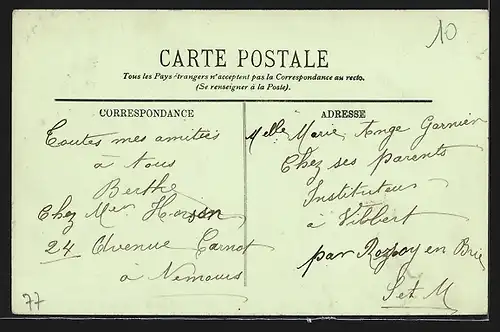 10
CARTE POSTALE
Tous les Pays étrangers n'acceptent pas la Correspondance au recto.
(Se renseigner à la Poste).
CORRESPONDANCE
Toutes mes amitiés
à tous
Berthe
Chez Mer
24 Avenue Carnot
à Nemours
77
ADRESSE
Melle Marie Ange Garnier
Chez ses parents
Instituteur
à Vilbert
par Rozoy en Brie
S et M